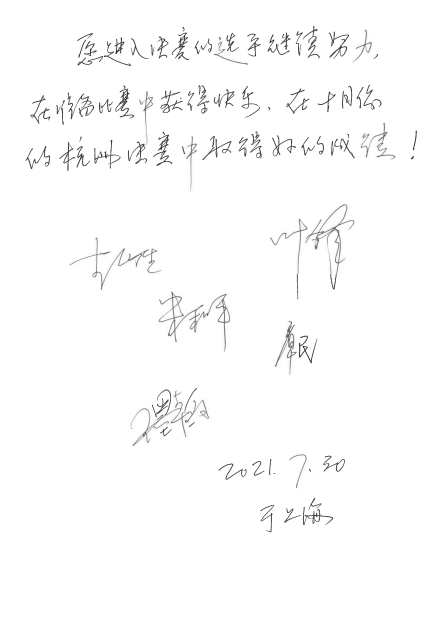 愿进入决赛的选手继续努力,
在准备比赛中获得快乐,在十月份
的杭州决赛中取得好的成绩!
叶锋
朱和平
2021.7.30
于上海